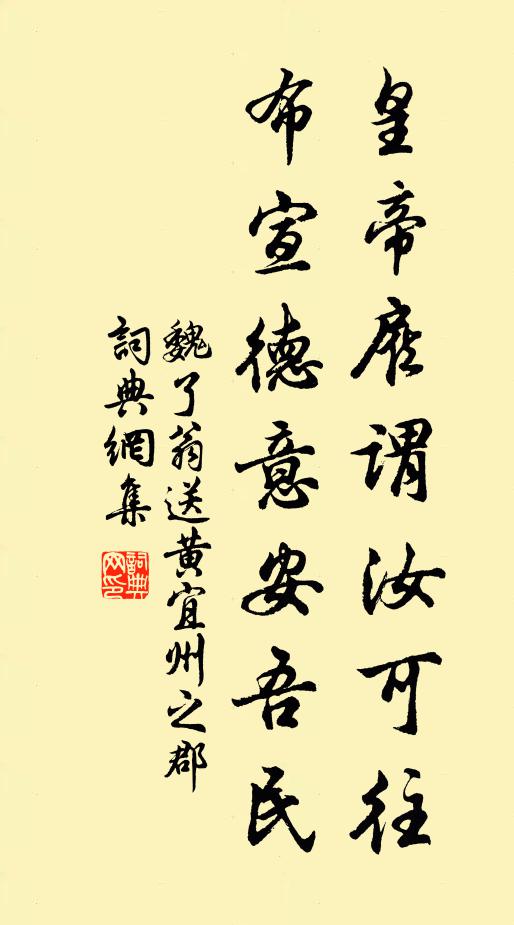 皇帝扆謂汝可往
布宣德意安吾民
魏了翁送黄宜州之郡
詞典網集
詞典
网印